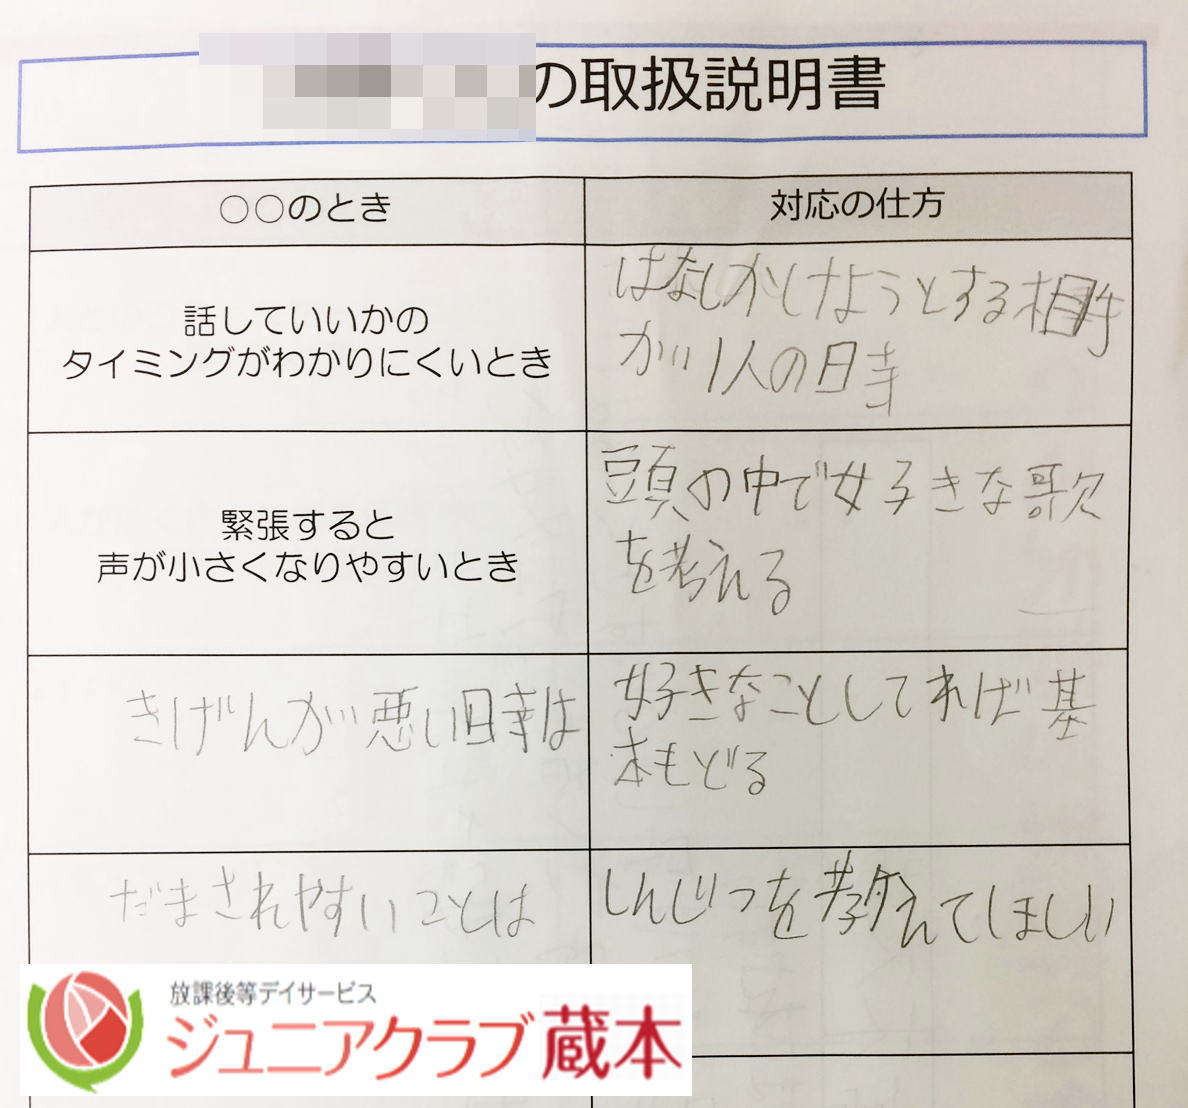 の取扱説明書
○○のとき
対応の仕方
話していいかの
タイミングがわかりにくいとき
はなしかけようとする相手
が1人の時
緊張すると
声が小さくなりやすいとき
頭の中で好きな歌
を考える
きげんが悪い時は
好きなことしてれば基
本もどる
だまされやすいことは
しんじつを教えてほしい
放課後等デイサービス
ジュニアクラブ蔵本